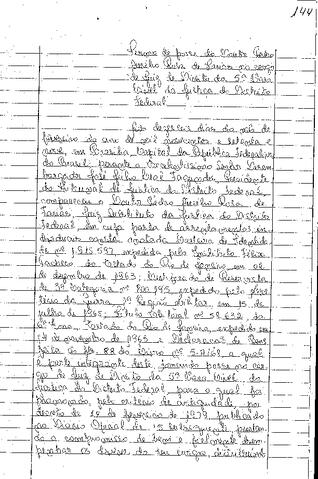 144
Termo de posse do Doutor Pedro
Aurélio Rosa de Farias no cargo
de Juiz de Direito da 5ª Vara
Cível da Justiça do Distrito
Federal
Aos dezesseis dias do mês de
fevereiro do ano de mil novecentos e setenta e
nove, em Brasília, Capital da República Federativa
do Brasil, perante o Excelentíssimo Senhor Desem-
bargador José Júlio Leal Fagundes, Presidente
do Tribunal de Justiça do Distrito Federal,
compareceu o Doutor Pedro Aurélio Rosa de
Farias, Juiz Substituto da Justiça do Distrito
Federal, em cuja pasta de assentamentos in-
dividuais consta anotada Carteira de Identida-
de nº expedida pelo Instituto Félix
Pacheco do Estado do Rio de Janeiro em 02
de dezembro de 1963; Certificado de Reservista
de 3ª Categoria nº expedido pela
da Região Militar, em 15 de
julho de Título Eleitoral nº 58.632 da
Zona, Estado do Rio de Janeiro, expedido em
de novembro de 1965 e Declaração de Bens
feita às fls. 88 do Livro nº a qual
é parte integrante deste, tomando posse no car-
go de Juiz de Direito da 5ª Vara Cível da
Justiça do Distrito Federal, para o qual foi
promovido, pelo critério de antiguidade, por
decreto de 12 de fevereiro de 1979, publicado
no Diário Oficial de 13 subsequente, prestan-
do o compromisso de bem e fielmente desem-
penhar os deveres do seu cargo, cumprindo